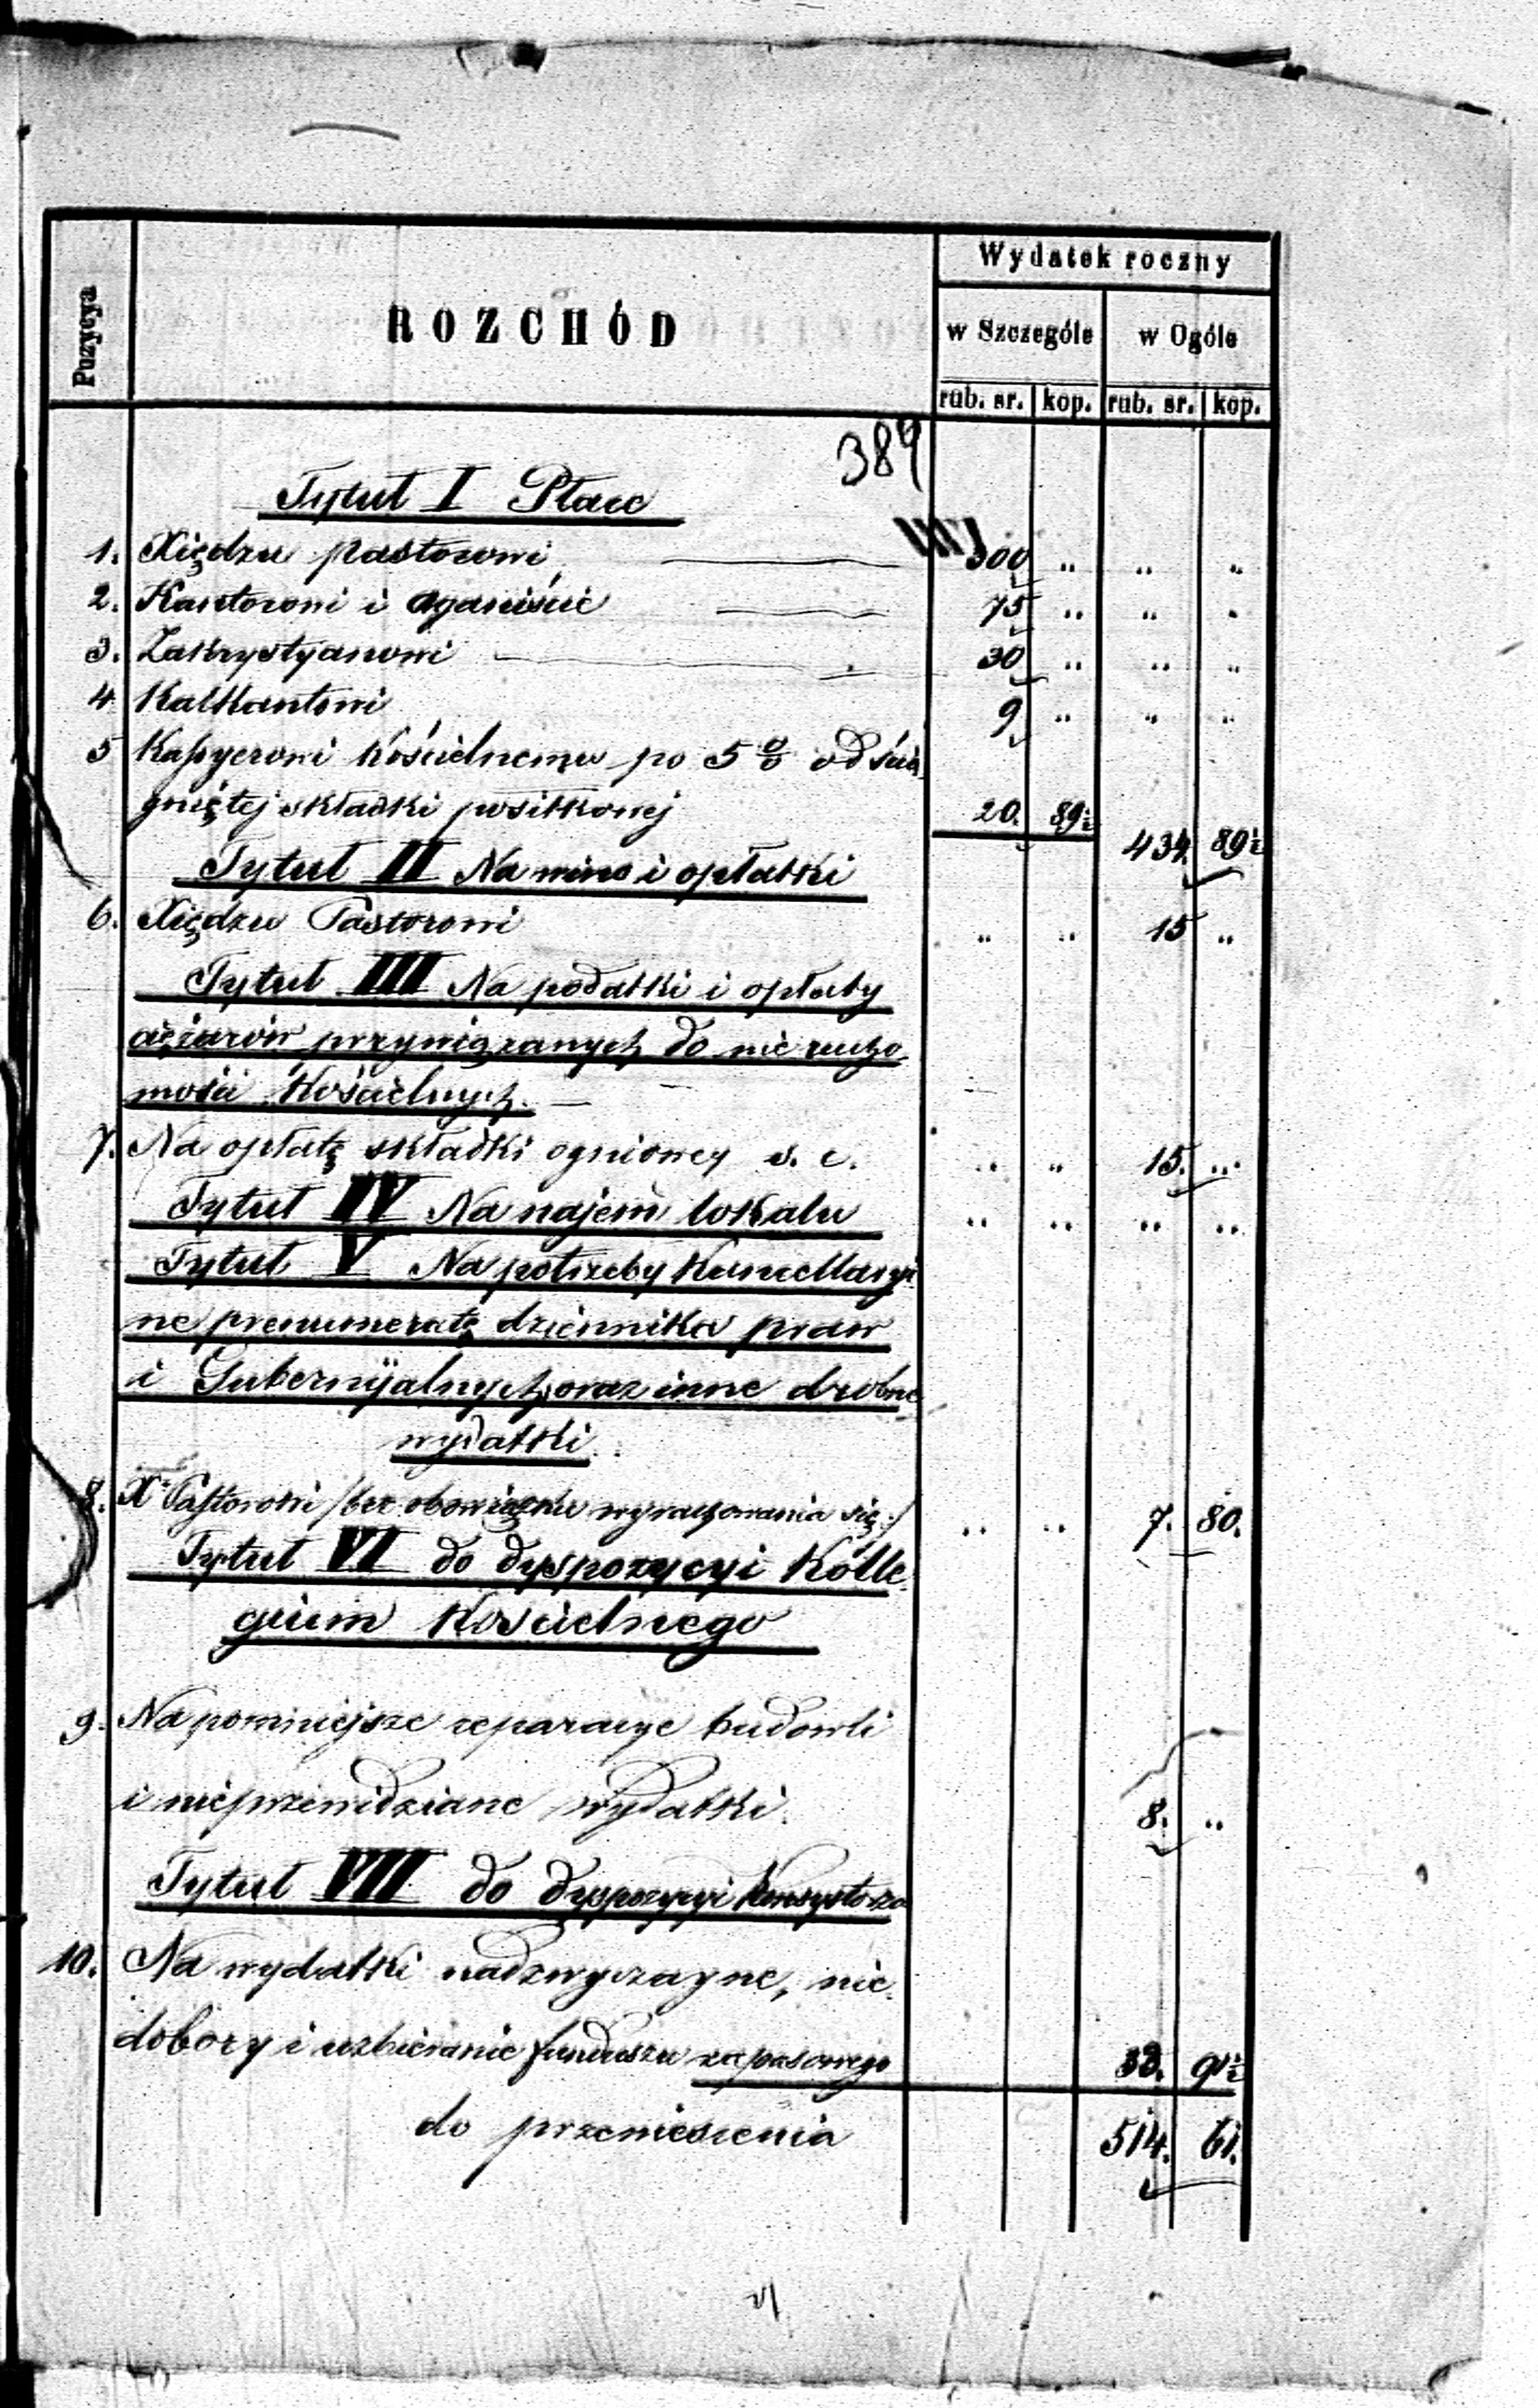 Pozycya
ROZCHÓD
Wydatek roczny
w Szczególe
w Ogóle
rub. sr. kop. rub. sr. kop.
389
Tytuł I Płace
1. Xiędzu Pastorowi 300 „ „ „
2. Kantorowi i Organiście 75 „ „ „
3. Zakrystyanowi 30 „ „ „
4 Kalkantowi 9 „ „ „
5 Kassyerowi Kościelnemu po 5 % od ścią
gniętej składki posiłkowej 20. 89½ 434. 89½
Tytuł II Na wino i opłatki
6. Xiędzu Pastorowi „ „ 15 „
Tytuł III Na podatki i opłaty
ciężarów przywiązanych do nierucho
mości Kościelnych. —
7. Na opłatę składki ogniowey s. c. „ „ 15. „
Tytuł IV Na najem lokalu „ „ „ „
Tytuł V Na potrzeby Kancellaryi
ne prenumeratę dziennika praw
i Gubernijalnych, oraz inne drobne
wydatki.
8. X. Pastorowi /bez obowiązku wyrachowania się:/ „ „ 7. 80.
Tytuł VI do dyspozycyi Kolle
gium Kościelnego
9. Na pomniejsze reparacye budowli
i nieprzewidziane wydatki. 8. „
Tytuł VII do dyspozycyi Konsystorza
10. Na wydatki nadzwyczayne, nie
dobory i uzbieranie funduszu zapasowego 33. 91½
do przeniesienia 514. 61.